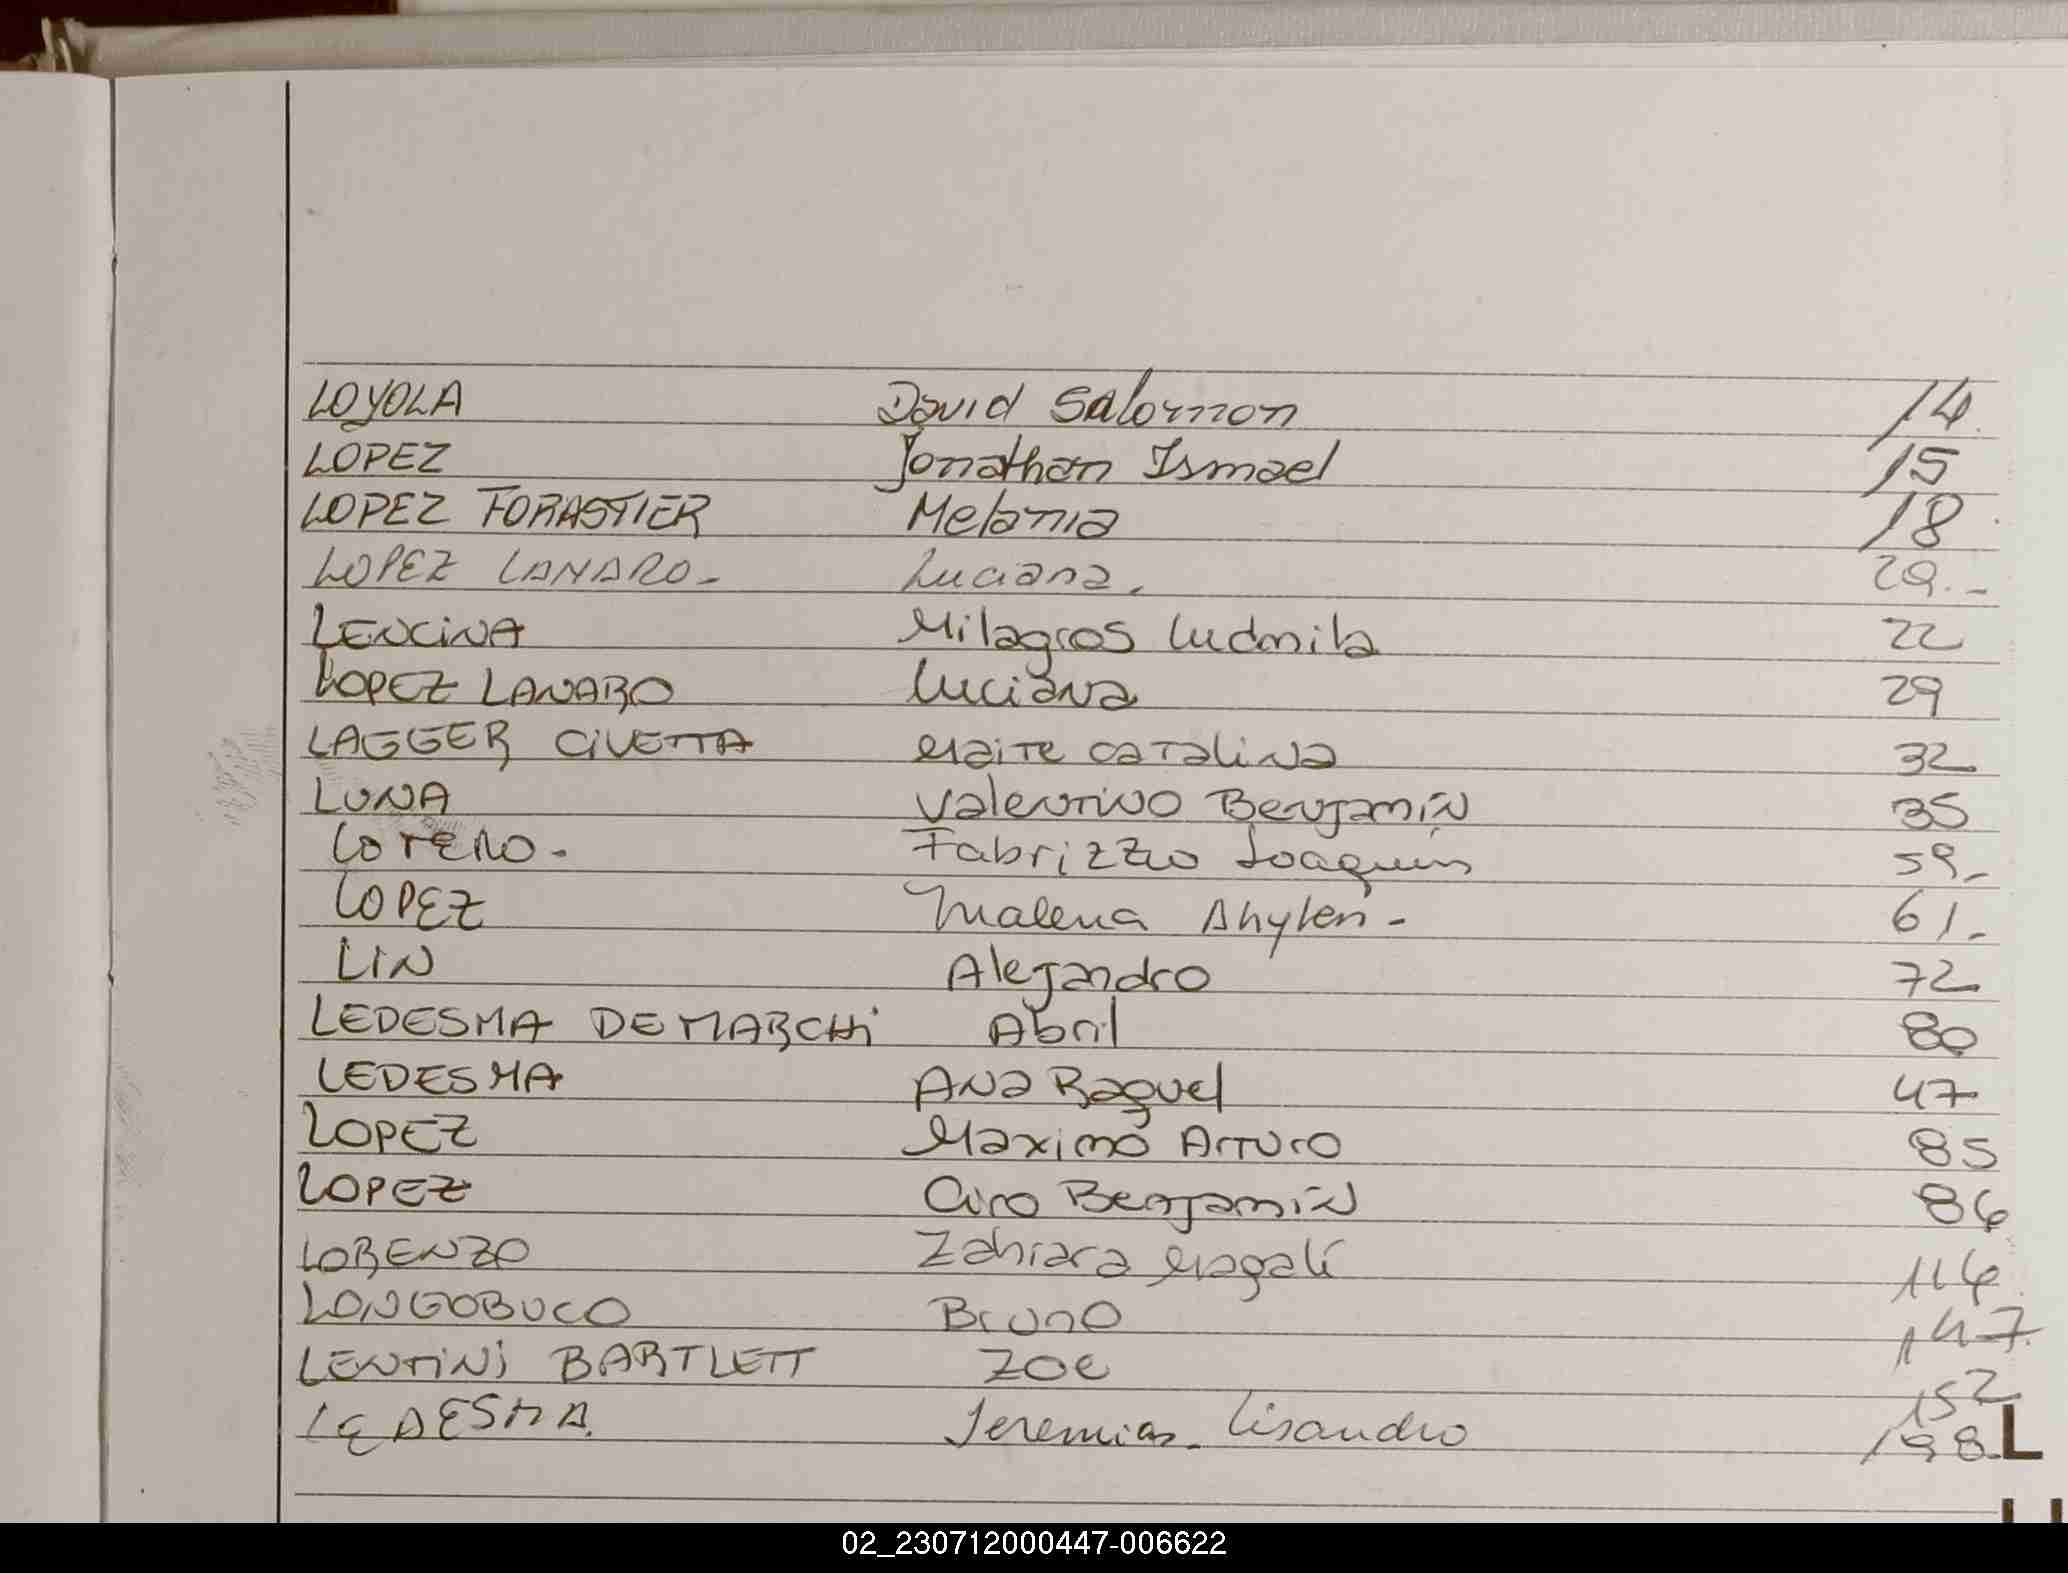 LOYOLA David Salomon 14
LOPEZ Jonathan Ismael 15
LOPEZ FORASTIER Melania 18
LOPEZ LANARO- Luciana. 29.-
LENCiNA Milagros Ludmila 22
LOPEZ LANARO Luciana 29
LAGGER CiVETTA Maite Catalina 32
LUNA Valentino Benjamín 35
LOTERO- Fabrizzio Joaquin 59-
LOPEZ Malena Ahylen- 61-
LIN Alejandro 72
LEDESMA DEMARCHi Abril 80
LEDESMA Ana Raquel 47
LOPEZ Maximo Arturo 85
LOPEZ Ciro Benjamín 86
LORENZO Zahiara Magalí 114
LONGOBUCO Bruno 147
LENTiNi BARTLETT Zoe 152
LEDESMA. Jeremias- Lisandro 198
L
02_230712000447-006622